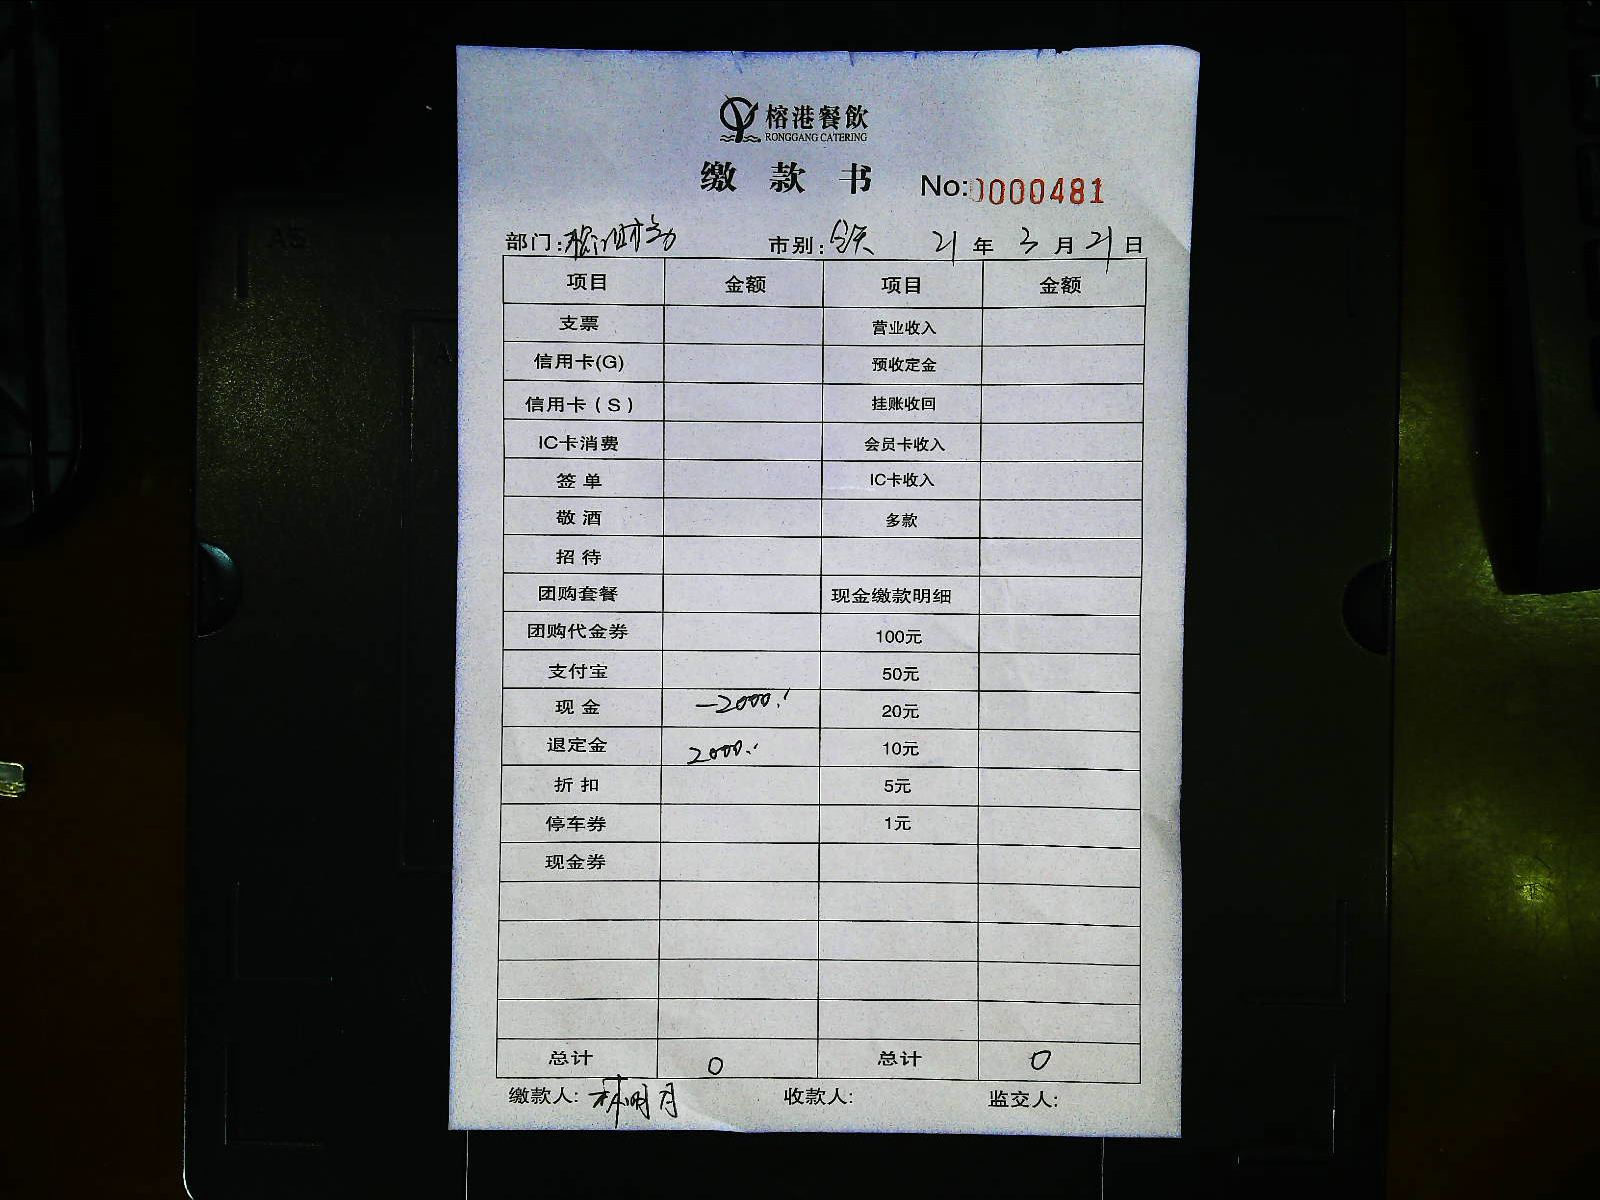 榕港餐飲
RONGGANG CATERING
缴款书 No:0000481
部门: 市别:全天 21年3月21日
项目 金额 项目 金额
支票 营业收入
信用卡(G) 预收定金
信用卡(S) 挂账收回
IC卡消费 会员卡收入
签单 IC卡收入
敬酒 多款
招待
团购套餐 现金缴款明细
团购代金券 100元
支付宝 50元
现金 -2000.- 20元
退定金 2000.- 10元
折扣 5元
停车券 1元
现金券
总计 0 总计 0
缴款人:林明月 收款人: 监交人: